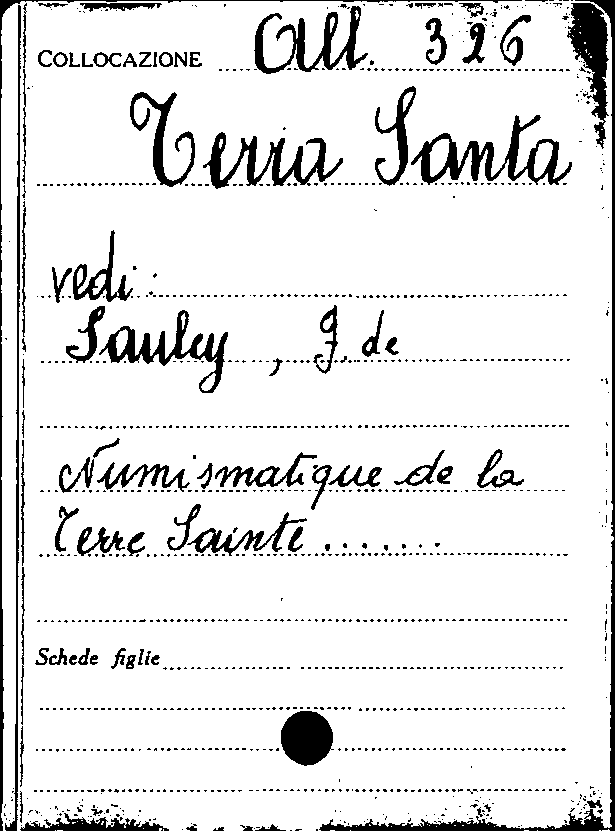 COLLOCAZIONE All. 326
Terra Santa
vedi:
Saulcy, J. de
Numismatique de la
Terre Sainte .......
Schede figlie